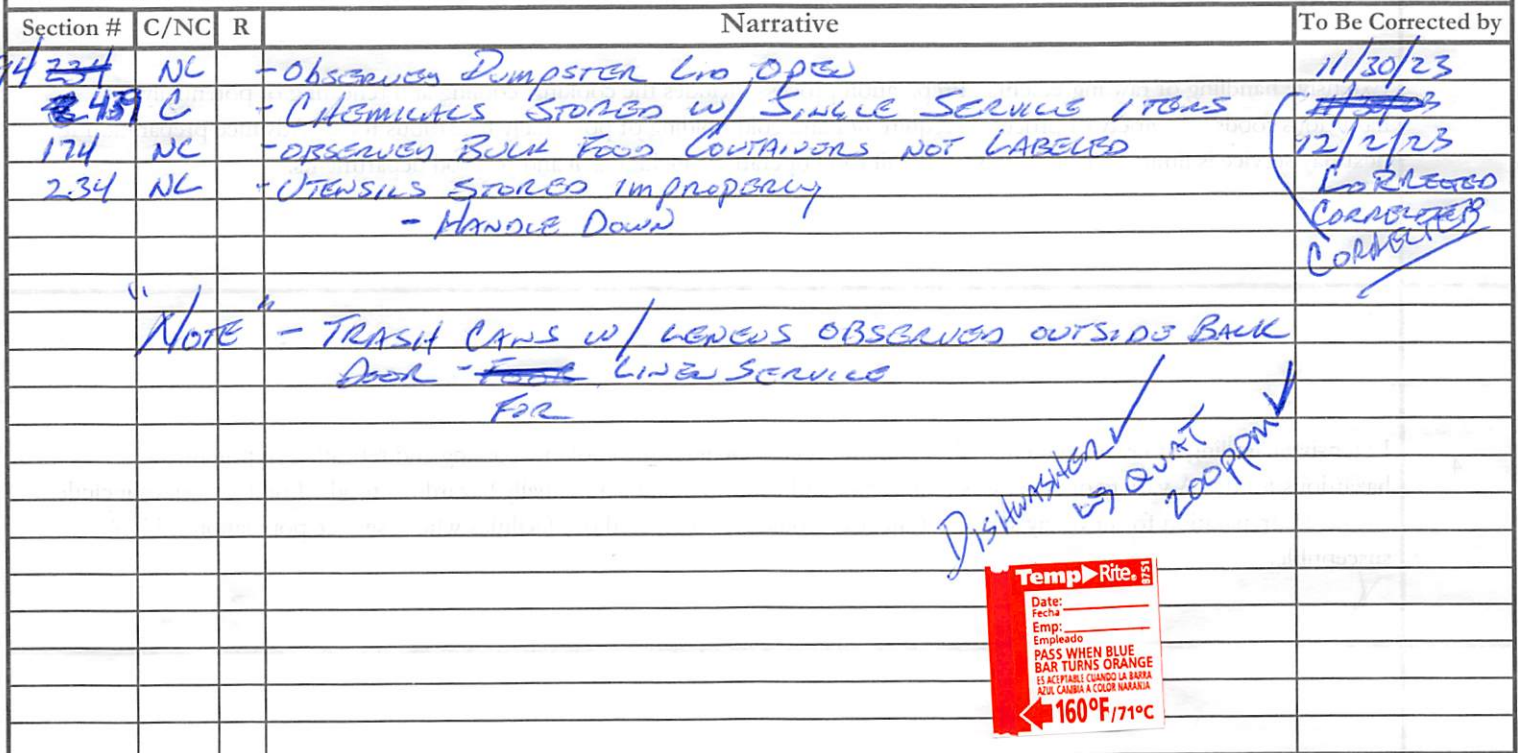 Section # C/NC R Narrative To Be Corrected by
234 NC - OBSERVED DUMPSTER LID OPEN 11/30/23
439 C - CHEMICALS STORED W/ SINGLE SERVICE ITEMS
174 NC - OBSERVED BULK FOOD CONTAINERS NOT LABELED 12/2/23
234 NC - UTENSILS STORED IMPROPERLY CORRECTED
- HANDLE DOWN CORRECTED
CORRECTED
"NOTE" - TRASH CANS W/ LENENS OBSERVED OUTSIDE BACK
DOOR - LINEN SERVICE
FOR
DISHWASHER ✓
↳ QUAT
200ppm ✓
Temp▶Rite® 8751
Date:
Fecha
Emp:
Empleado
PASS WHEN BLUE
BAR TURNS ORANGE
ES ACEPTABLE CUANDO LA BARRA
AZUL CAMBIA A COLOR NARANJA
160°F/71°C